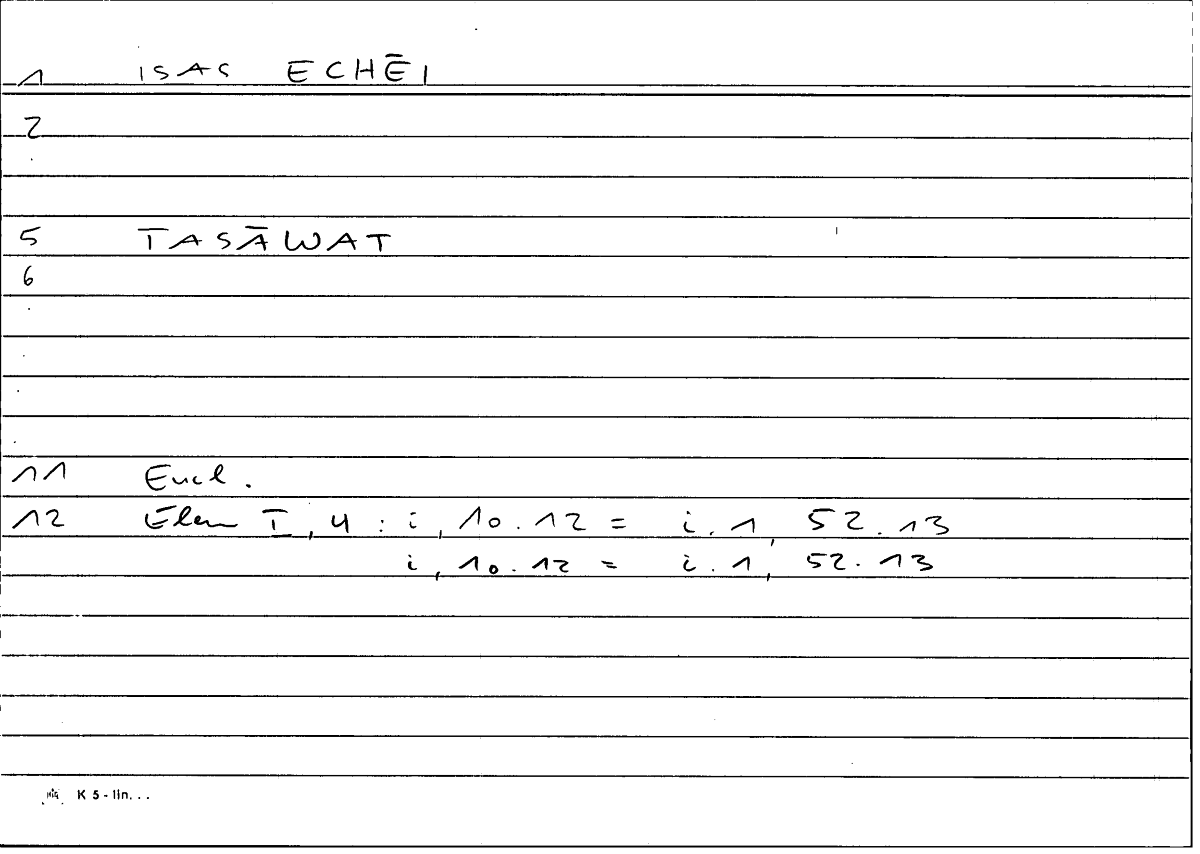 1 ISAS ECHĒI
2
5 TASĀWAT
6
11 Eucl.
12 Elem I, 4 : i, 10.12 = i.1, 52.13
i, 10.12 = i.1, 52.13
K 5 - lin. . .